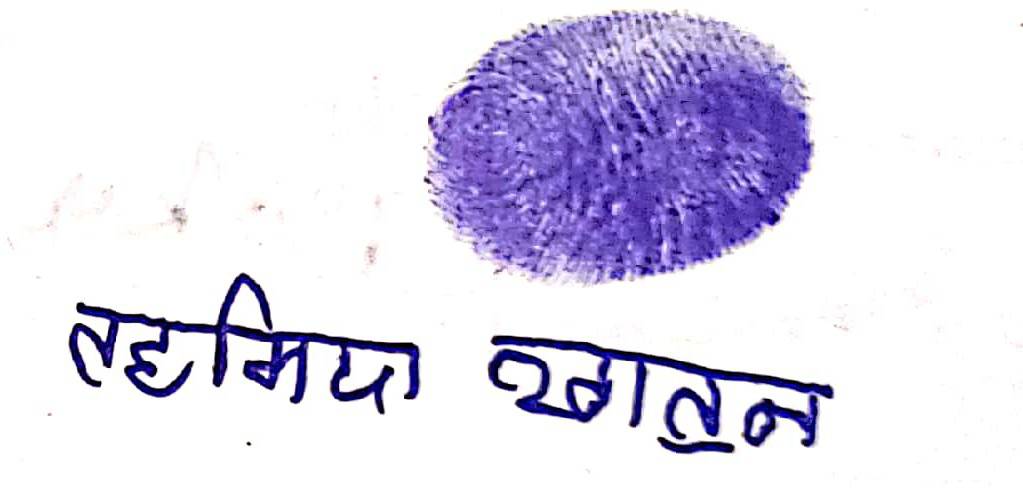 तहमिया खातुन